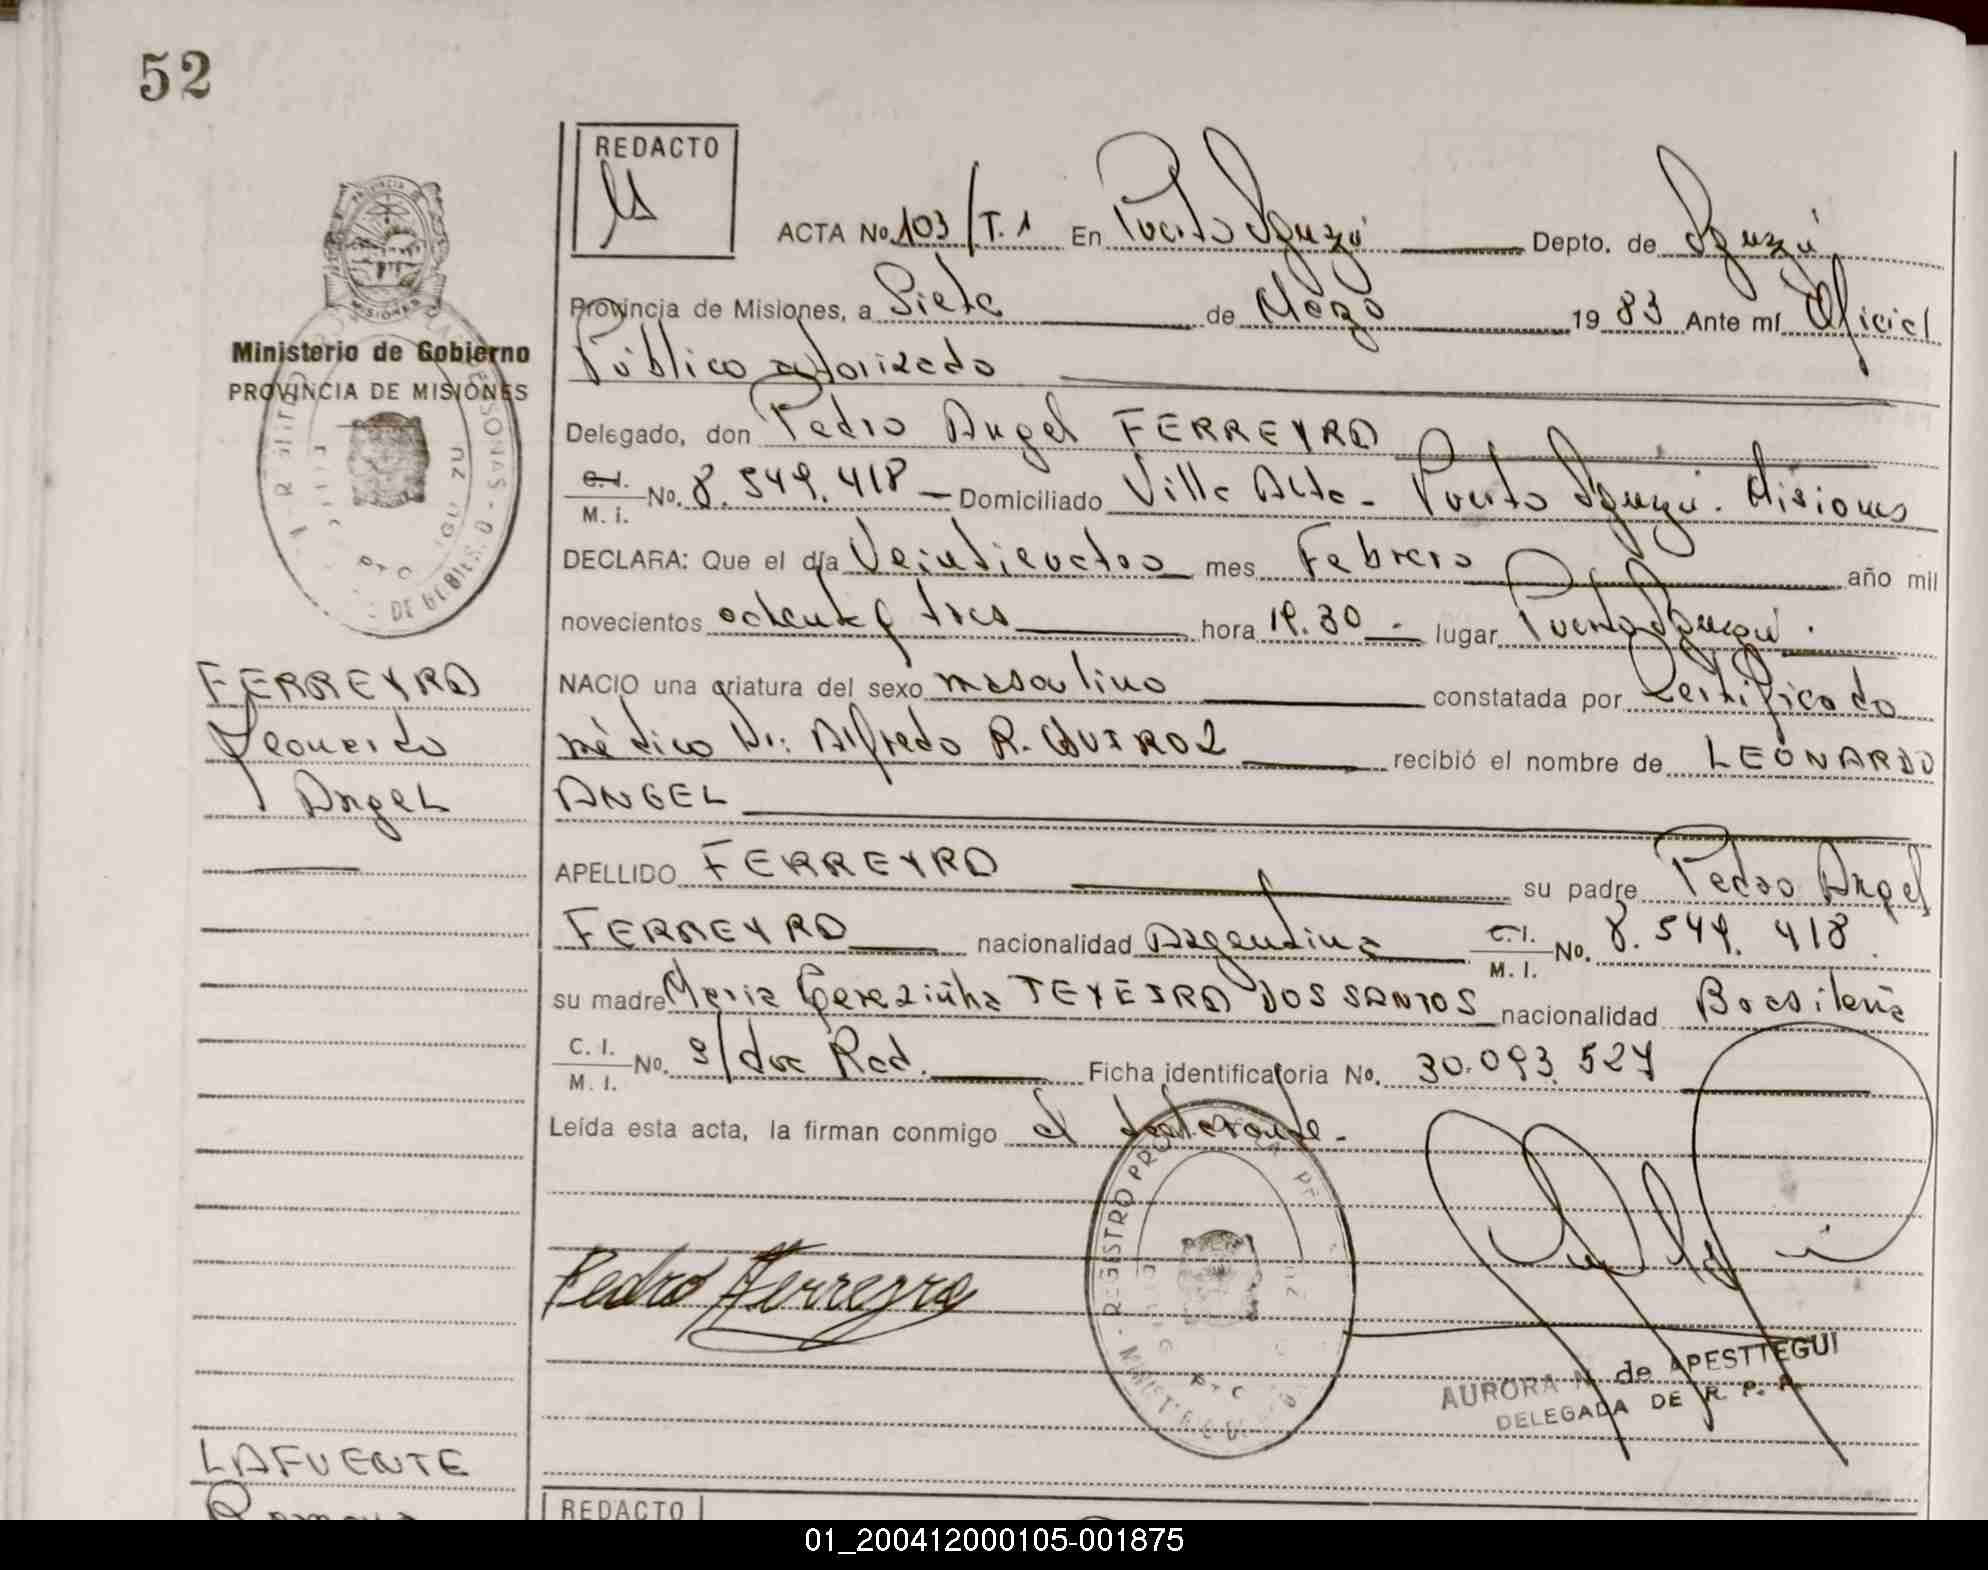 52
REDACTO
ACTA No. 103/T.1 En Puerto Iguazú Depto. de Iguazú
Provincia de Misiones, a Siete de Marzo 1983 Ante mí Oficial
Público autorizado
Ministerio de Gobierno
PROVINCIA DE MISIONES
Delegado, don Pedro Angel FERREYRA
C.I. M.I. No. 8.549.418 Domiciliado Villa Alta - Puerto Iguazú. Misiones
DECLARA: Que el día mes Febrero año mil
novecientos ochenta y tres hora 19.30 - lugar Puerto Iguazú.
FERREYRA
Leonardo
Angel
NACIO una criatura del sexo masculino constatada por Certificado
médico Dr: Alfredo R. QUIROZ recibió el nombre de LEONARDO
ANGEL
APELLIDO FERREYRA su padre Pedro Angel
FERREYRA nacionalidad Argentina C.I. M.I. No. 8.549.418.
su madre Maria Terezinha TEXEIRA DOS SANTOS nacionalidad Brasileña
C.I. M.I. No. s/doc Rad. Ficha identificatoria No. 30.093.527
Leída esta acta, la firman conmigo el declarante.-
Pedro Ferreyra
AURORA N. de APESTTEGUI
DELEGADA DE R. P. P.
LAFUENTE
REDACTO
01_200412000105-001875